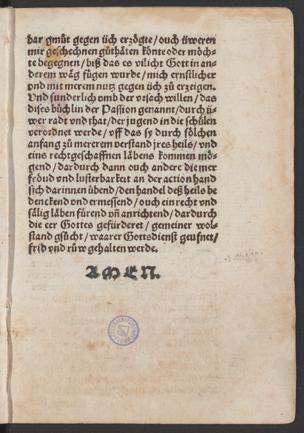 bar gmüt gegen üch erzögte / ouch üweren
mir geschechnen gůthäten könte oder möch-
te begegnen / biß das es vilicht Gott in an-
derem wäg fügen wurde / mich ernstlicher
vnd mit merem nutz gegen üch zů erzeigen.
Vnd sunderlich vmb der vrsäch willen / das
dises büchlin der Passion genannt / durch ü-
wer radt vnd that / der jugend in die schůlen
verordnet werde / vff das sy durch sölchen
anfang zů mererem verstand jres heils / vnd
eins rechtgeschaffnen läbens kommen mö-
gend / dardurch dann ouch andere die mer
fröud vnd lustbarkeit an der action hand
sich darinnen übend / den handel deß heils be
denckend vnd ermessend / ouch ein recht vnd
sälig läben fürend vñ anrichtend / dardurch
die eer Gottes gefürderet / gemeiner wol-
stand gsůcht / waarer Gottsdienst geufnet /
frid vnd růw gehalten werde.
AMEN.